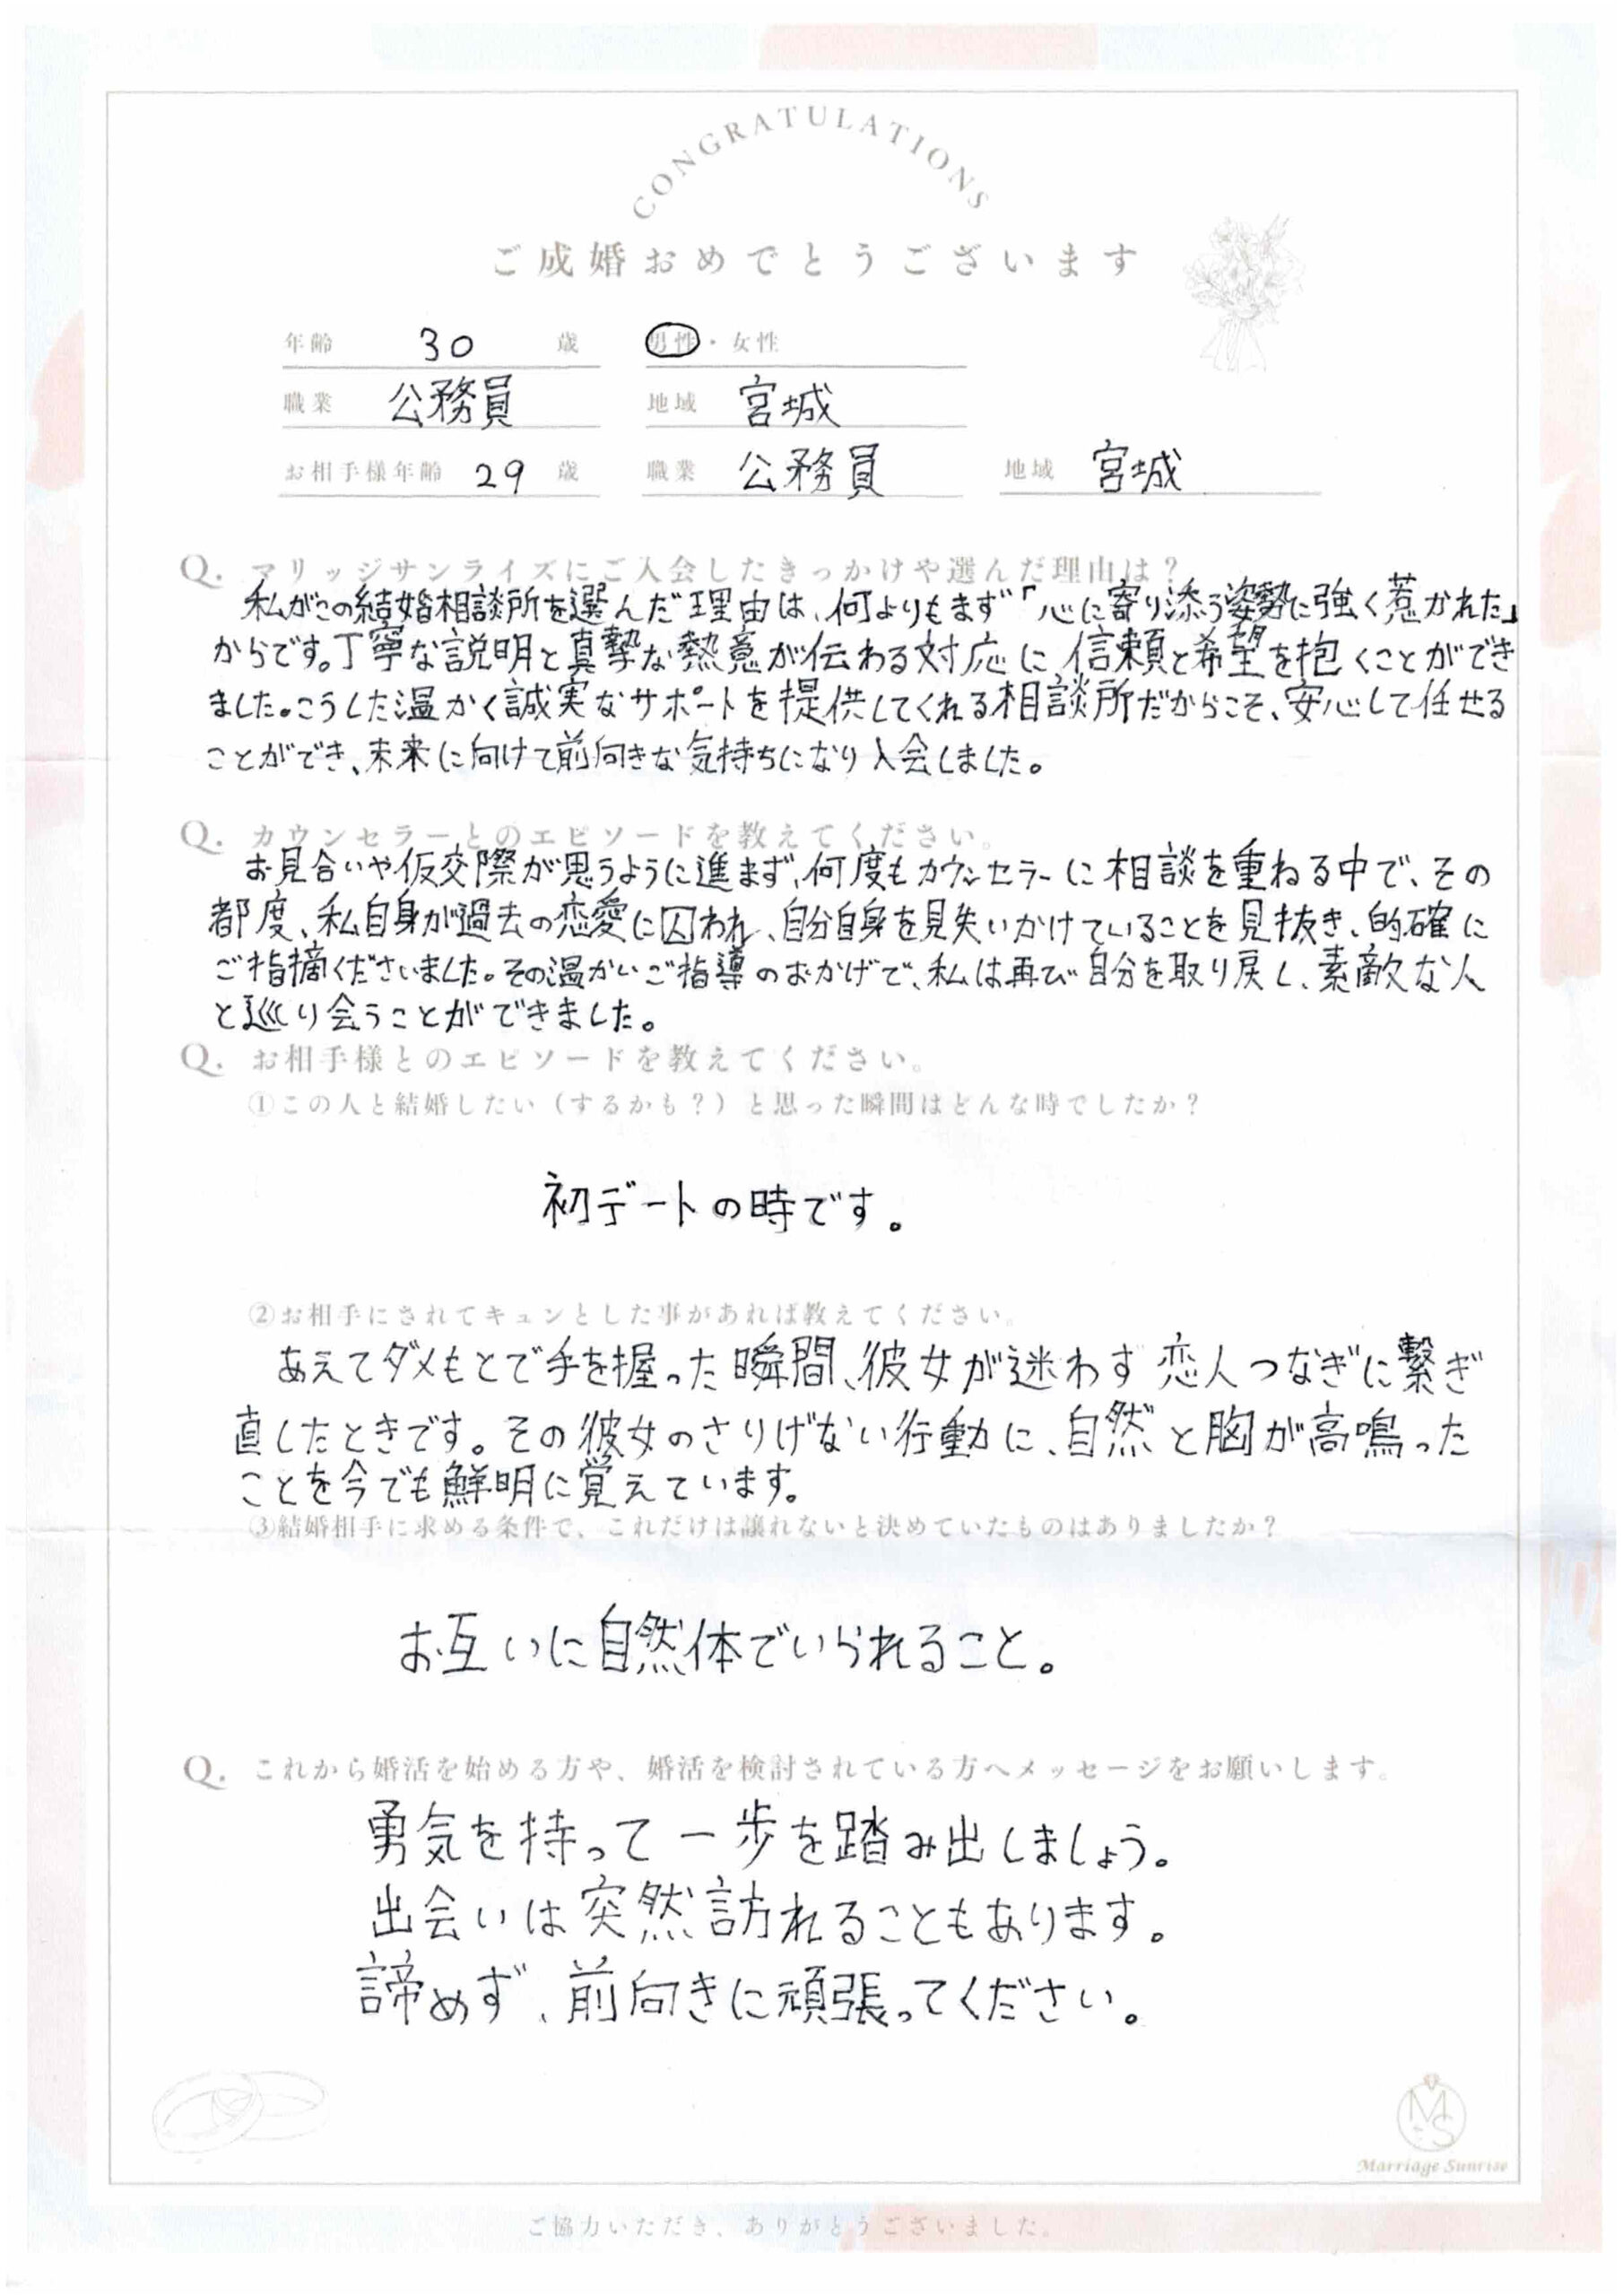 CONGRATULATIONS
ご成婚おめでとうございます
年齢 30 歳 男性・女性
職業 公務員 地域 宮城
お相手様年齢 29 歳 職業 公務員 地域 宮城
Q. マリッジサンライズにご入会したきっかけや選んだ理由は？
私がこの結婚相談所を選んだ理由は、何よりもまず「心に寄り添う姿勢に強く惹かれた」
からです。丁寧な説明と真摯な熱意が伝わる対応に、信頼と希望を抱くことができ
ました。こうした温かく誠実なサポートを提供してくれる相談所だからこそ、安心して任せる
ことができ、未来に向けて前向きな気持ちになり入会しました。
Q. カウンセラーとのエピソードを教えてください。
お見合いや仮交際が思うように進まず、何度もカウンセラーに相談を重ねる中で、その
都度、私自身が過去の恋愛に囚われ、自分自身を見失いかけていることを見抜き、的確に
ご指摘くださいました。その温かいご指導のおかげで、私は再び自分を取り戻し、素敵な人
と巡り会うことができました。
Q. お相手様とのエピソードを教えてください。
①この人と結婚したい（するかも？）と思った瞬間はどんな時でしたか？
初デートの時です。
②お相手にされてキュンとした事があれば教えてください。
あえてダメもとで手を握った瞬間、彼女が迷わず恋人つなぎに繋ぎ
直したときです。その彼女のさりげない行動に、自然と胸が高鳴った
ことを今でも鮮明に覚えています。
③結婚相手に求める条件で、これだけは譲れないと決めていたものはありましたか？
お互いに自然体でいられること。
Q. これから婚活を始める方や、婚活を検討されている方へメッセージをお願いします。
勇気を持って一歩を踏み出しましょう。
出会いは突然訪れることもあります。
諦めず、前向きに頑張ってください。
MS
Marriage Sunrise
ご協力いただき、ありがとうございました。